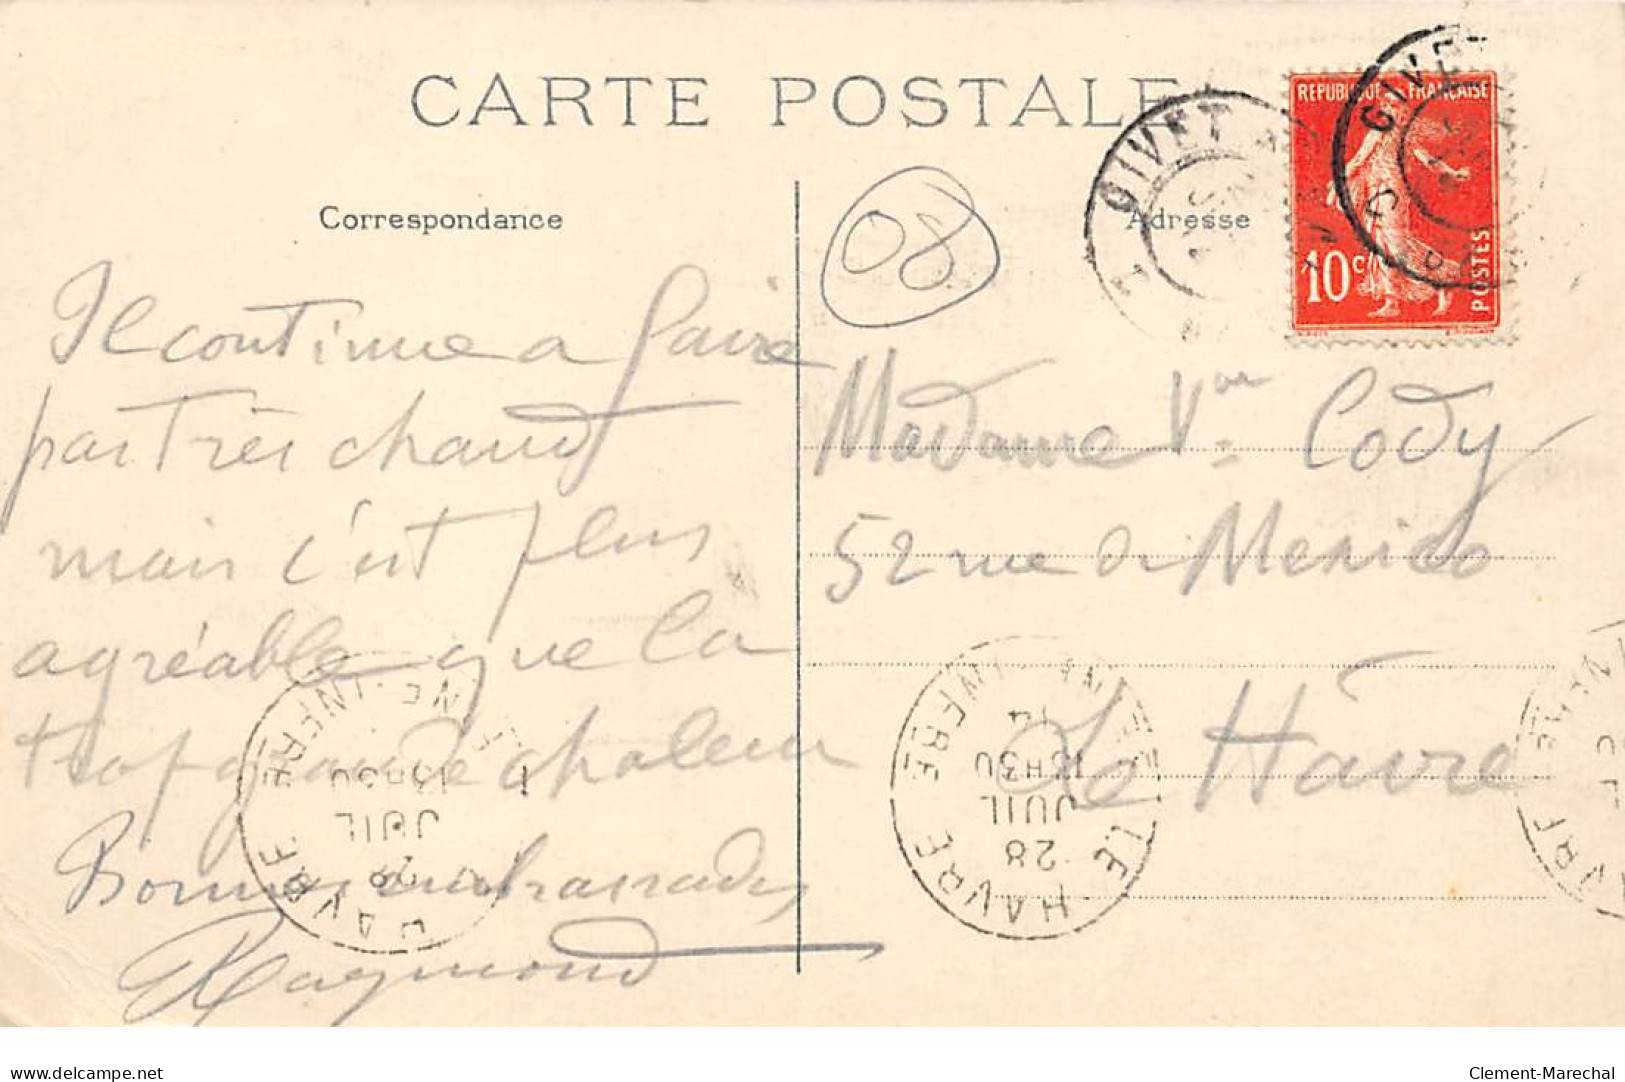 CARTE POSTALE
Correspondance
Adresse
08
GIVET
GIVET
REPUBLIQUE FRANÇAISE
10c
POSTES
Il continue a faire
pas très chaud
mais c'est plus
agréable que la
trop grande chaleur
Bonnes embrassades
Raymond
Madame Vve Cody
52 rue de Mexico
Le Hâvre
LE HAVRE
13H30
28
JUIL
14
HAVRE
13H30
28
JUIL
delcampe.net
Clement-Marechal